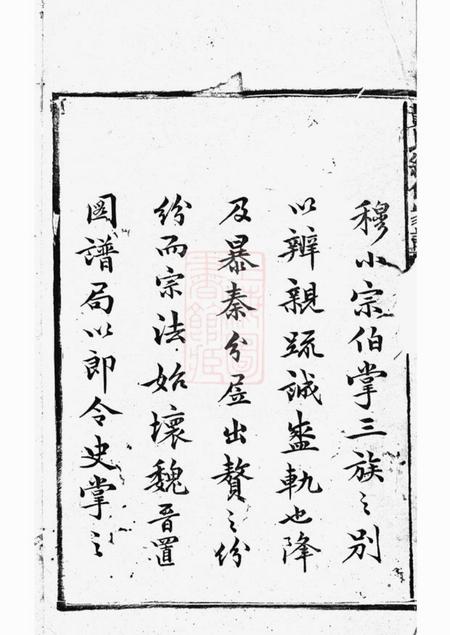 穆小宗伯掌三族之別
以辨親疏誠盛軌也降
及暴秦分居出贅之份
紛而宗法始壞魏晉置
圖譜局以郎令史掌之
上海圖
書館藏